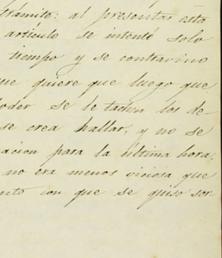 trámite: al presentar esta
artículo se intentó solo
tiempo y se contravino
ue quiere que luego que
oder se le tachen los de
se crea hallar, y no se
acion para la última hora,
no era menos viciosa que
nto con que se quiso sor